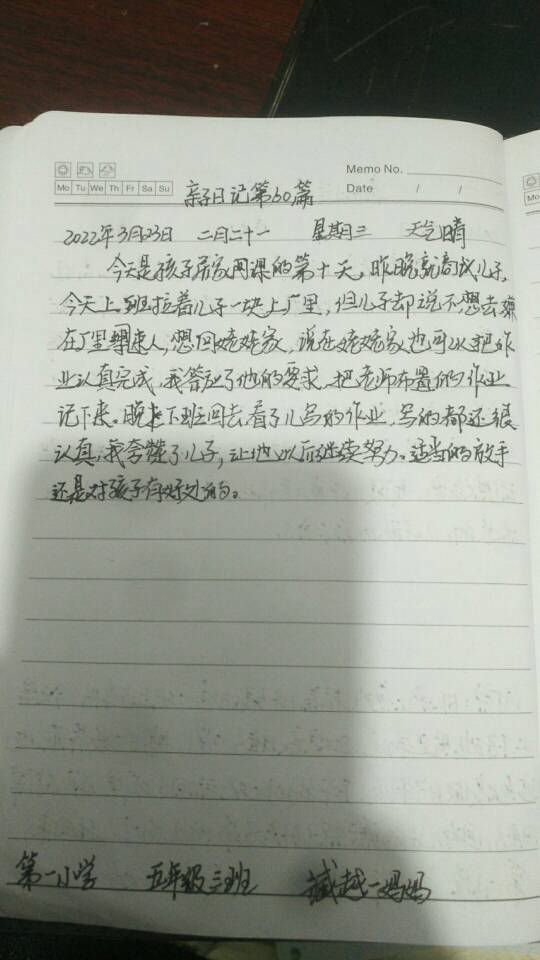 Memo No.
Mo Tu We Th Fr Sa Su
Date / /
亲子日记第30篇
2022年3月23日 二月二十一 星期三 天气晴
今天是孩子居家网课的第十天，昨晚就商议儿子，
今天上班拉着儿子一块上厂里，但儿子却说不想去嫌
在厂里人，想回姥姥家，说在姥姥家也可以把作
业认真完成，我答应了他的要求，把老师布置的作业
记下来。晚上下班回去，看了儿写的作业，写的都还很
认真，我夸赞了儿子，让他以后继续努力。适当的放手
还是对孩子有好处的。
第一小学 五年级三班 臧越一妈妈
Mo